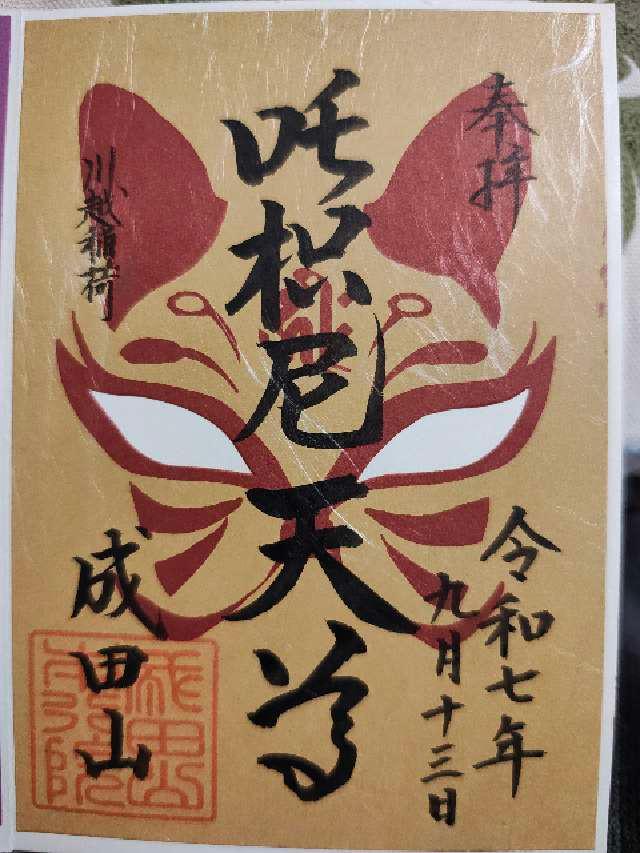 奉拝
令和七年
九月十三日
吒枳尼天尊
川越稲荷
成田山